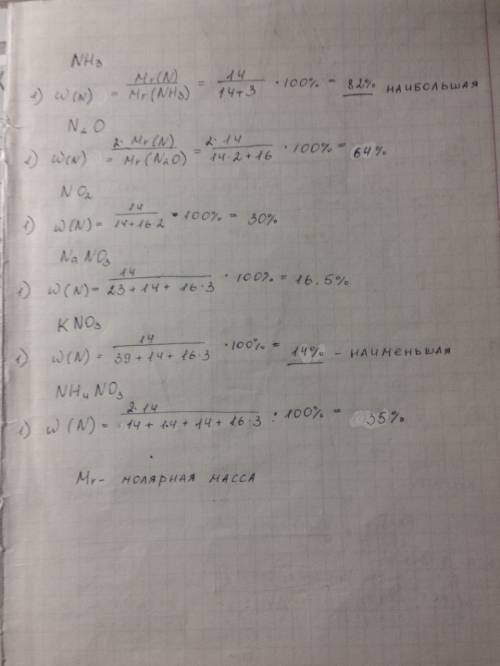 NH3
1) W(N) = Mr(N) / Mr(NH3) = 14 / 14+3 · 100% = 82% наибольшая
N2O
2) W(N) = 2·Mr(N) / Mr(N2O) = 2·14 / 14·2+16 · 100% = 64%
NO2
1) W(N) = 14 / 14+16·2 · 100% = 30%
NaNO3
1) W(N) = 14 / 23+14+16·3 · 100% = 16.5%
KNO3
1) W(N) = 14 / 39+14+16·3 · 100% = 14% - наименьшая
NH4NO3
1) W(N) = 2·14 / 14+14+14+16·3 · 100% = 35%
Mr - молярная масса